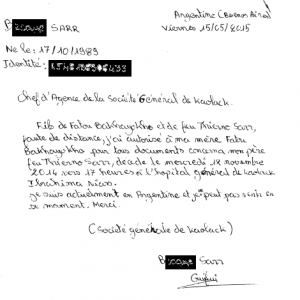 Argentine (Buenos Aires)
B SARR
Vierrnes 15/05/2015
Ne le: 17/10/1989
Identité:
Chef d'Agence de la Société Général de Kaolack.
Fils de Fatou Bakhayokho et de feu Thierno Sarr,
faute de distance, j'ai autorisé à ma mère Fatou
Bakhayokho pour tous documents concerna mon père
feu Thierno Sarr, decade le mercredi novembre
2014 vers 17 heures à l'hopital général de kaolack
Ibrahima Niass.
je suis actuellement en Argentine et je peut pas venir en
se moment. Merci.
(Société générale de kaolack)
B Sarr